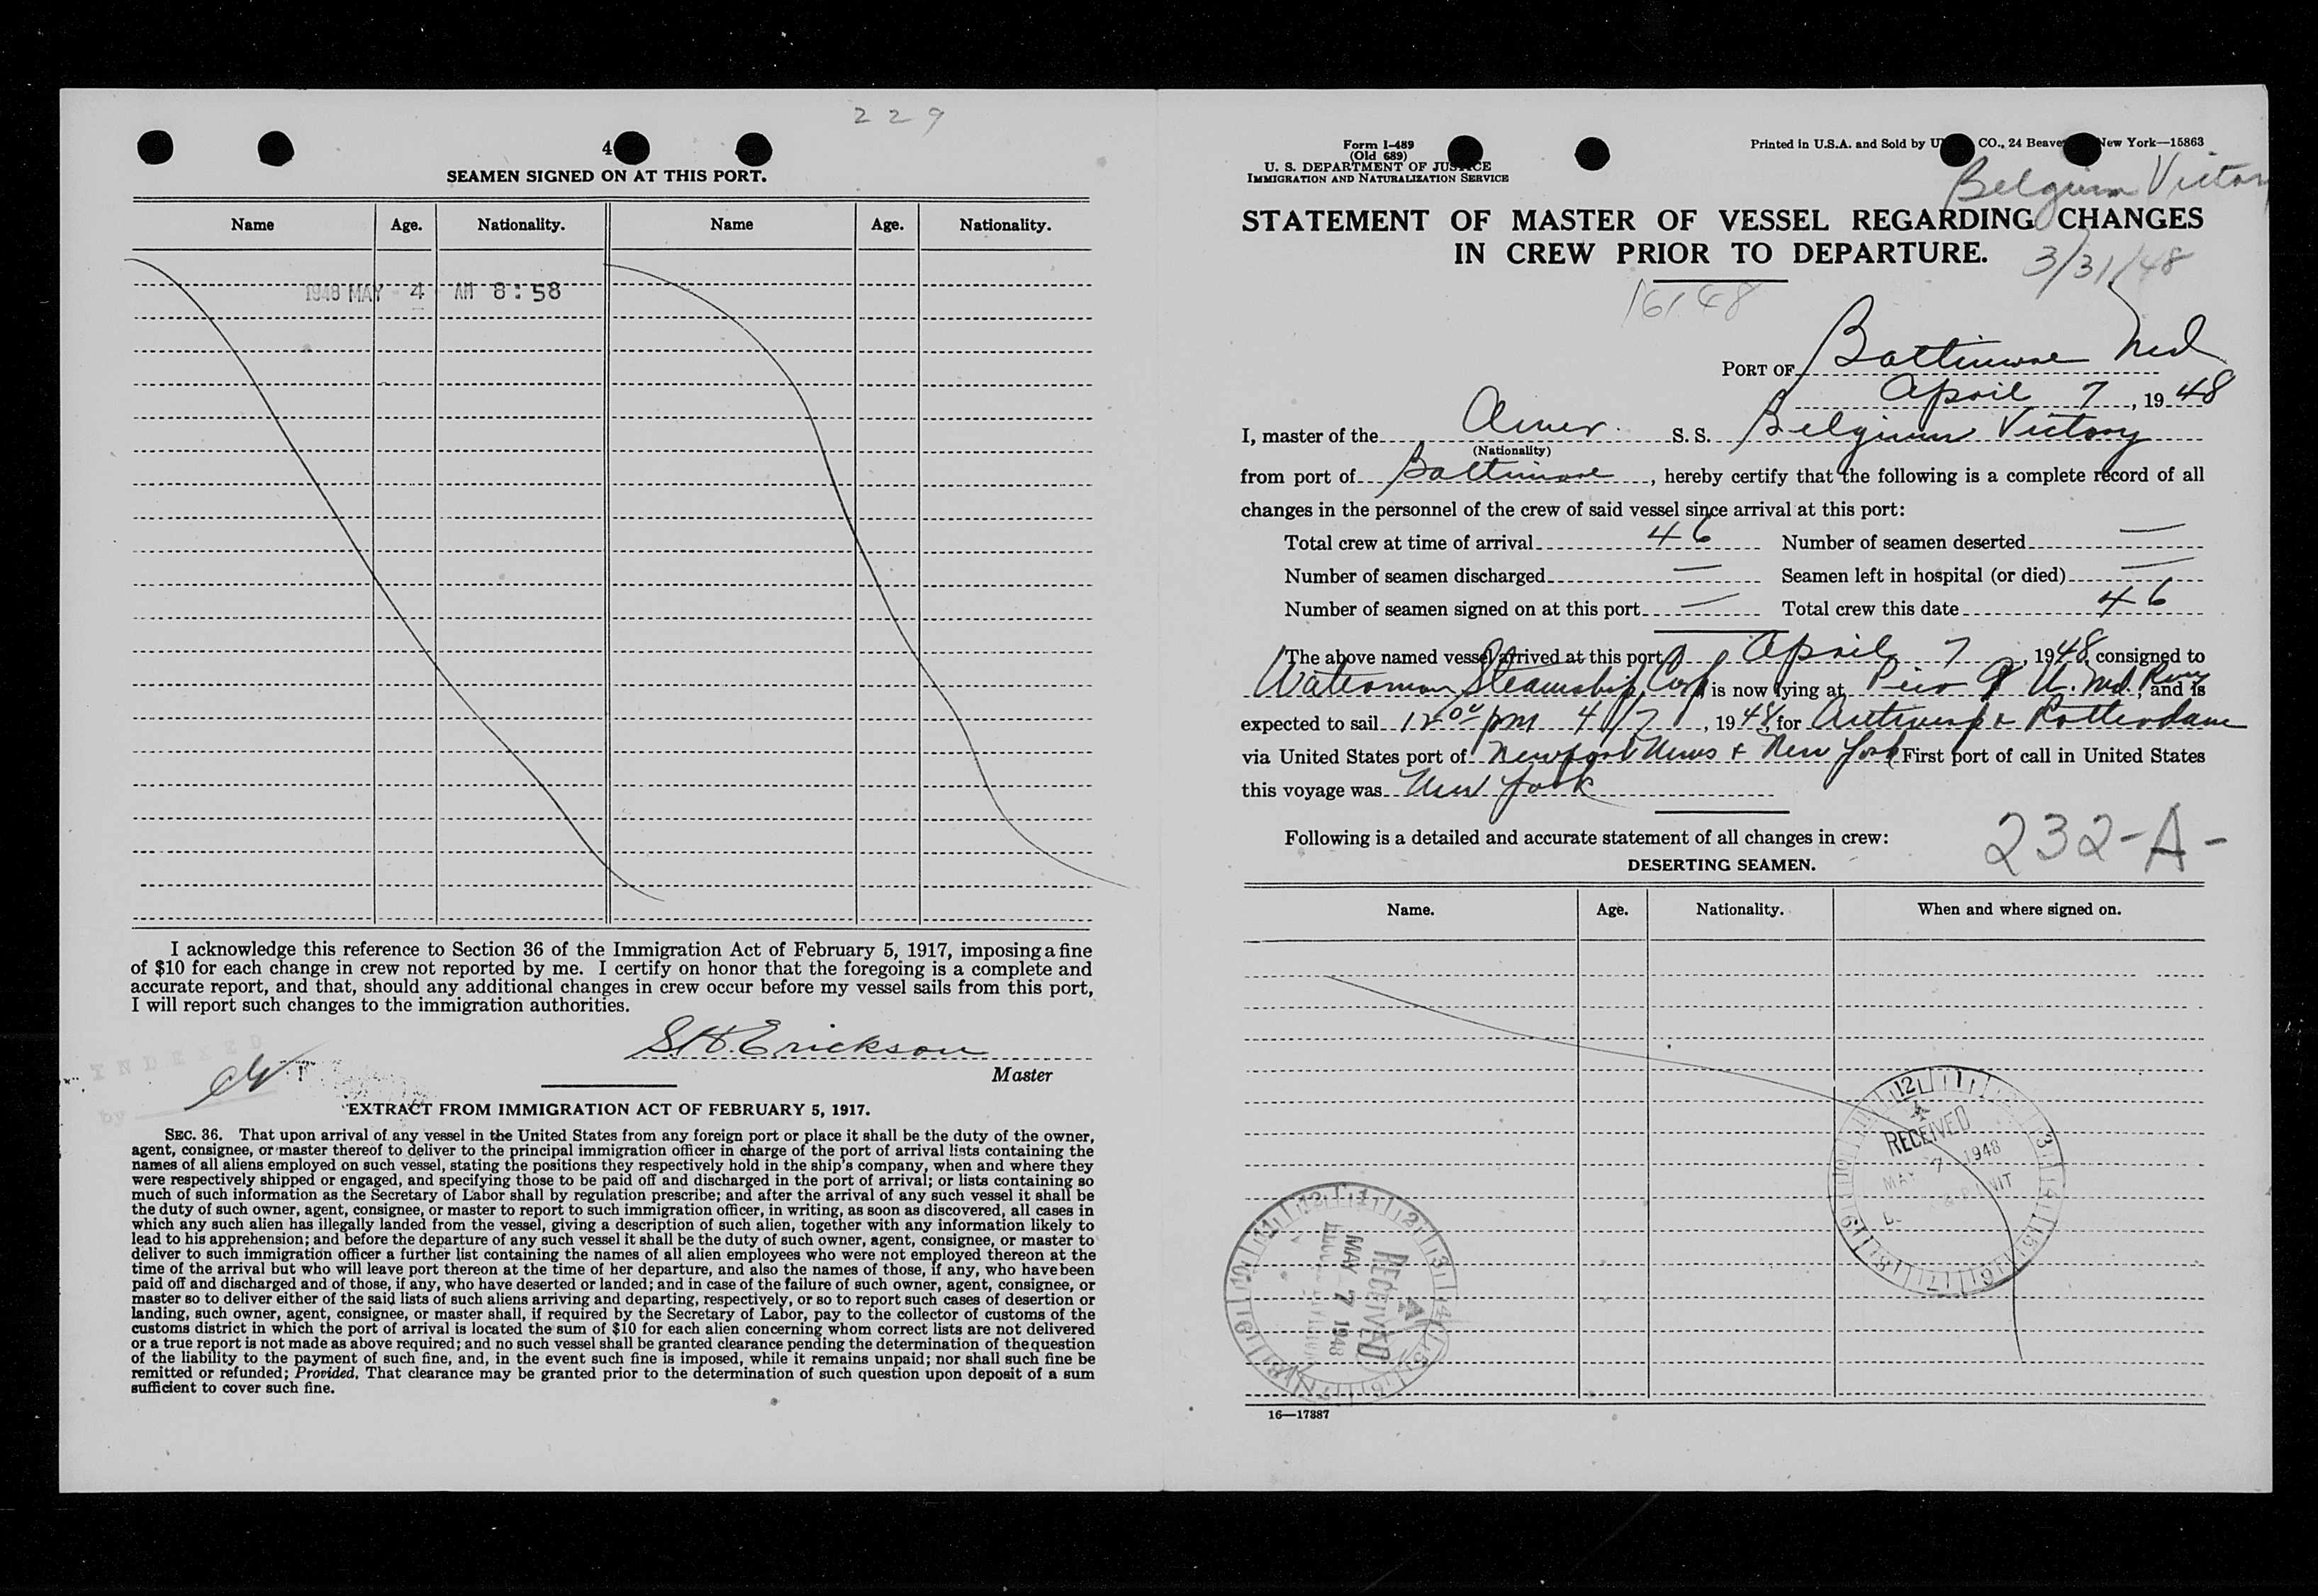 229
4
SEAMEN SIGNED ON AT THIS PORT.
Name Age. Nationality. Name Age. Nationality.
1948 MAY 4 AM 8:58
I acknowledge this reference to Section 36 of the Immigration Act of February 5, 1917, imposing a fine
of $10 for each change in crew not reported by me. I certify on honor that the foregoing is a complete and
accurate report, and that, should any additional changes in crew occur before my vessel sails from this port,
I will report such changes to the immigration authorities.
S.H. Erickson
Master
INDEXED
by
EXTRACT FROM IMMIGRATION ACT OF FEBRUARY 5, 1917.
SEC. 36. That upon arrival of any vessel in the United States from any foreign port or place it shall be the duty of the owner,
agent, consignee, or master thereof to deliver to the principal immigration officer in charge of the port of arrival lists containing the
names of all aliens employed on such vessel, stating the positions they respectively hold in the ship's company, when and where they
were respectively shipped or engaged, and specifying those to be paid off and discharged in the port of arrival; or lists containing so
much of such information as the Secretary of Labor shall by regulation prescribe; and after the arrival of any such vessel it shall be
the duty of such owner, agent, consignee, or master to report to such immigration officer, in writing, as soon as discovered, all cases in
which any such alien has illegally landed from the vessel, giving a description of such alien, together with any information likely to
lead to his apprehension; and before the departure of any such vessel it shall be the duty of such owner, agent, consignee, or master to
deliver to such immigration officer a further list containing the names of all alien employees who were not employed thereon at the
time of the arrival but who will leave port thereon at the time of her departure, and also the names of those, if any, who have been
paid off and discharged and of those, if any, who have deserted or landed; and in case of the failure of such owner, agent, consignee, or
master so to deliver either of the said lists of such aliens arriving and departing, respectively, or so to report such cases of desertion or
landing, such owner, agent, consignee, or master shall, if required by the Secretary of Labor, pay to the collector of customs of the
customs district in which the port of arrival is located the sum of $10 for each alien concerning whom correct lists are not delivered
or a true report is not made as above required; and no such vessel shall be granted clearance pending the determination of the question
of the liability to the payment of such fine, and, in the event such fine is imposed, while it remains unpaid; nor shall such fine be
remitted or refunded; Provided, That clearance may be granted prior to the determination of such question upon deposit of a sum
sufficient to cover such fine.
Form I-489
(Old 689)
U. S. DEPARTMENT OF JUSTICE
IMMIGRATION AND NATURALIZATION SERVICE
Printed in U.S.A. and Sold by CO., 24 Beaver New York—15863
Belgium Victory
STATEMENT OF MASTER OF VESSEL REGARDING CHANGES
IN CREW PRIOR TO DEPARTURE.
3/31/48
16148
PORT OF Baltimore Md
April 7, 1948
I, master of the Amer. S. S. Belgium Victory
(Nationality)
from port of Baltimore, hereby certify that the following is a complete record of all
changes in the personnel of the crew of said vessel since arrival at this port:
Total crew at time of arrival 46 Number of seamen deserted —
Number of seamen discharged — Seamen left in hospital (or died) —
Number of seamen signed on at this port — Total crew this date 46
The above named vessel arrived at this port April 7, 1948, consigned to
Waterman Steamship Corp is now lying at Pier 9 W. Md. Rwy, and is
expected to sail 12 00 pm 4/7, 1948, for Antwerp & Rotterdam
via United States port of Newport News & New York First port of call in United States
this voyage was New York
Following is a detailed and accurate statement of all changes in crew:
232-A-
DESERTING SEAMEN.
Name. Age. Nationality. When and where signed on.
RECEIVED
MAY 7 1948
RECEIVED
MAY 7 1948
16—17887